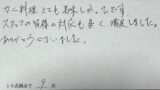 カニ料理とても美味しかったです。
スタッフの皆様の対応も良く満足しました。
ありがとうございました。
10点満点で 9 点